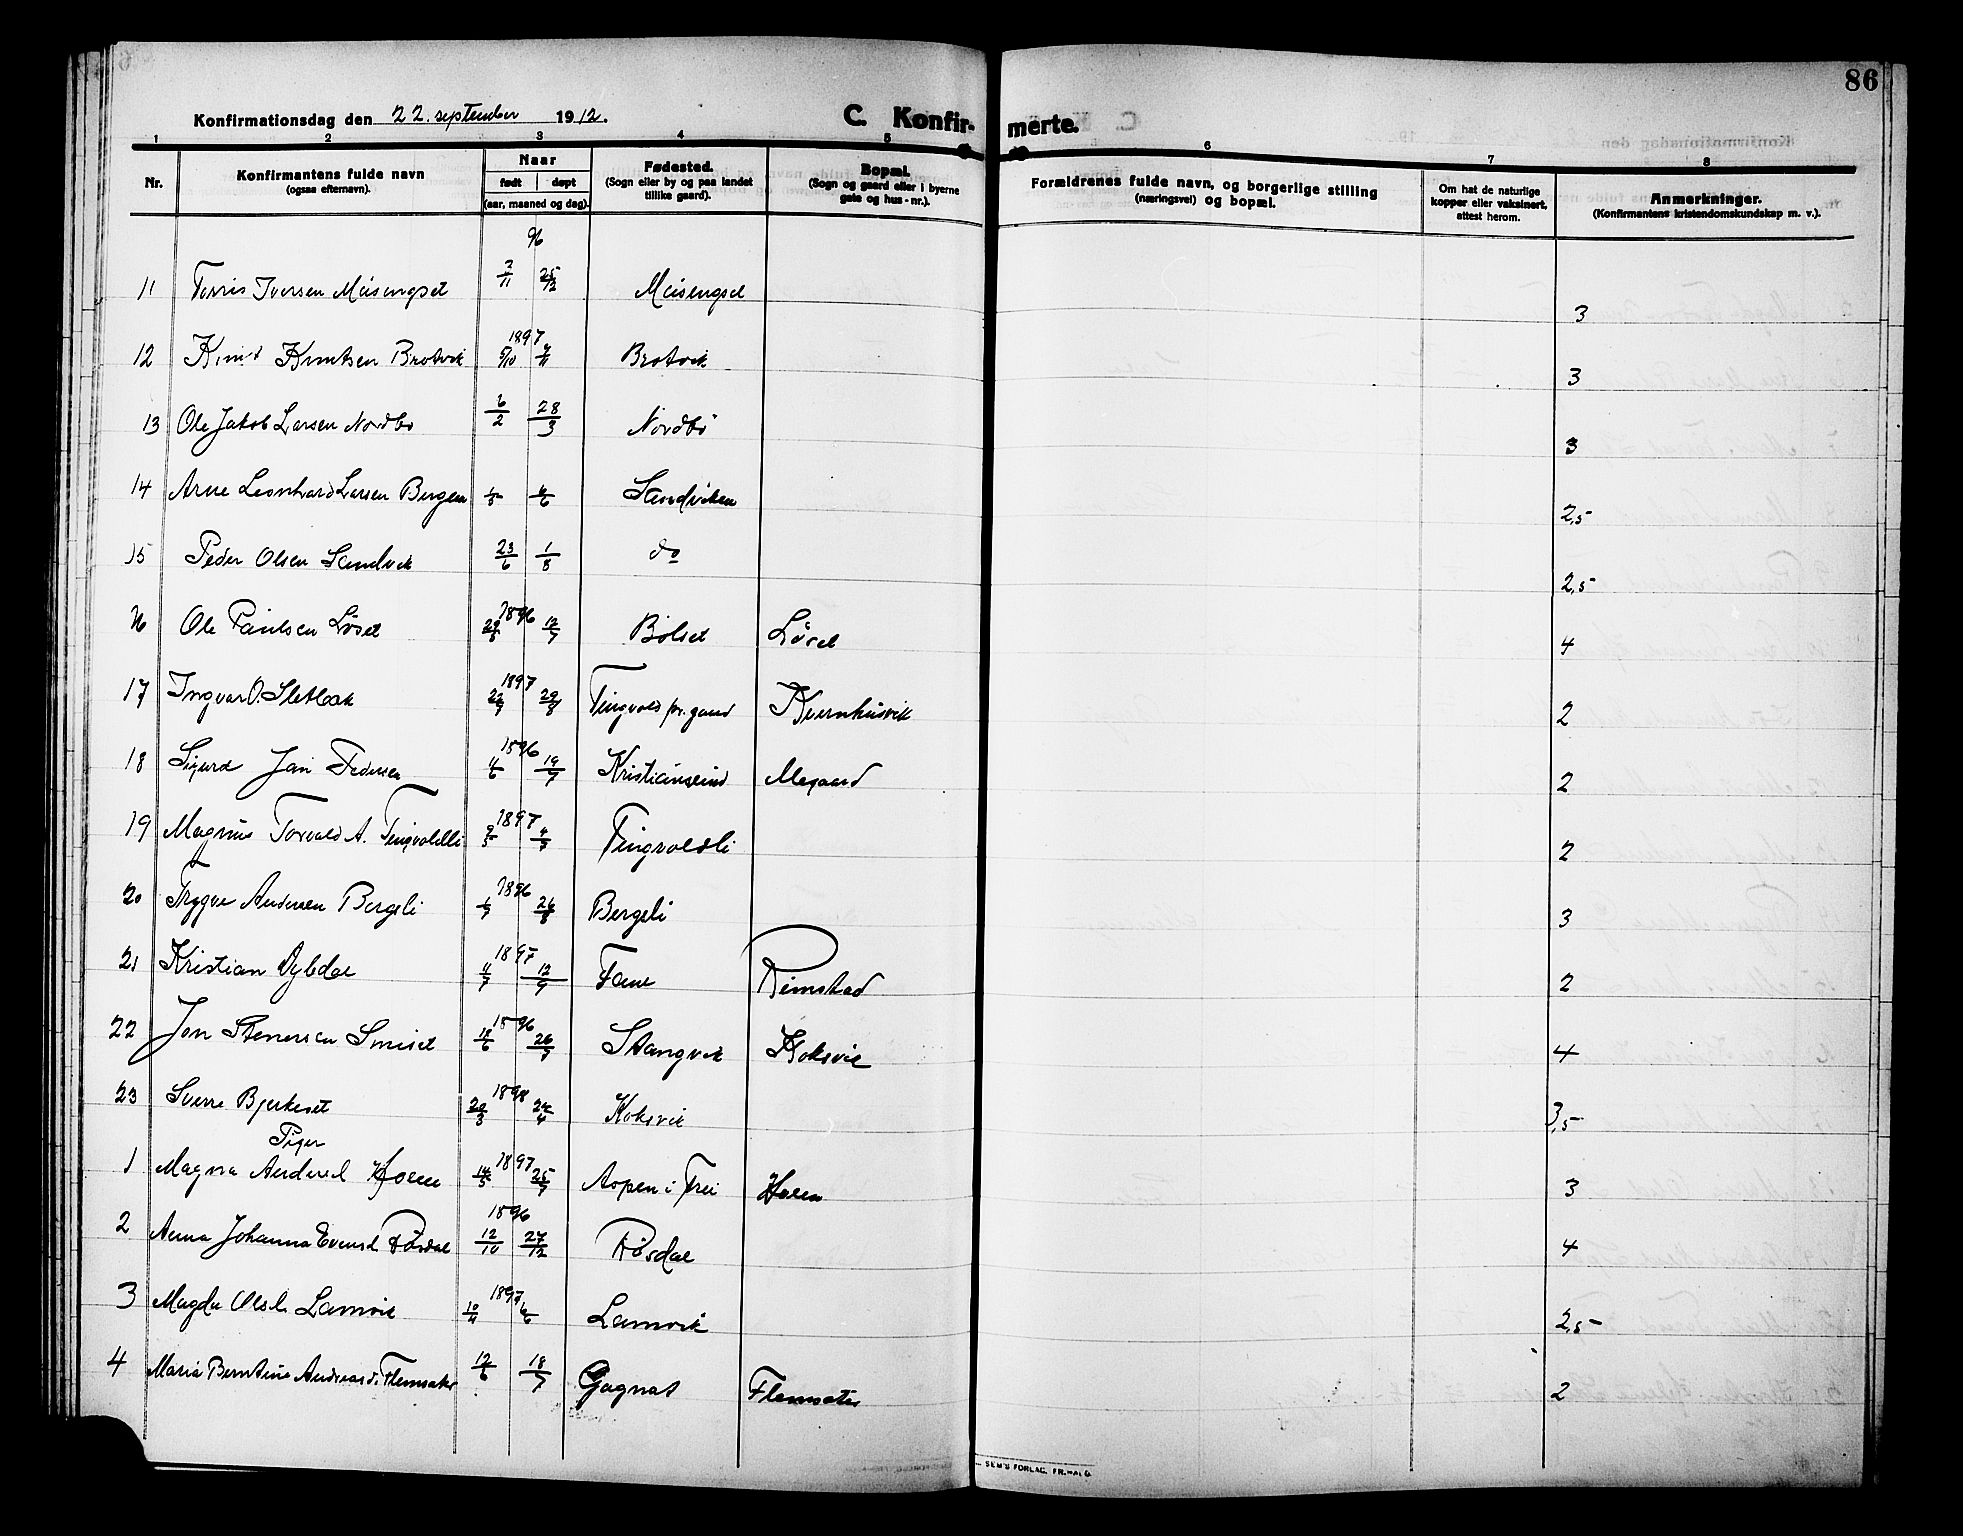 86
Konfirmationsdag den 22. september 1912.
C. Konfir- merte.
1 2 3 4 5 6 7 8
Nr.
Konfirmantens fulde navn
(ogsaa efternavn).
Naar
født døpt
(aar, maaned og dag).
Fødested.
(Sogn eller by og paa landet
tillike gaard).
Bopæl.
(Sogn og gaard eller i byerne
gate og hus-nr.).
Forældrenes fulde navn, og borgerlige stilling
(næringsvei) og bopæl.
Om hat de naturlige
kopper eller vaksinert,
attest herom.
Anmerkninger.
(Konfirmantens kristendomskundskap m. v.).
96
11 Iversen Meisengset 2/11 25/12 Meisengset 3
1897
12 Knut Knutsen Brotvik 5/10 7/11 Brotvik 3
13 Ole Jakob Larsen Nordbø 6/2 28/3 Nordbø 3
14 Arne Leonhard Larsen Bergem 6/6 Sandviken 2,5
15 Peder Olsen Sandvik 23/6 1/8 do 2,5
1896
16 Ole Paulsen Løset 12/7 Bølset Løset 4
1897
17 Ingvar O. Sletbak 22/7 29/8 Tingvold pr.gaard Kvernhusvik 2
1896
18 Sigurd Jan Pedersen 11/6 19/7 Kristiansund Megaard 2
1897
19 Magnus Torvald A. Tingvoldli 9/5 4/7 Tingvoldli 2
1896
20 Trygve Andersen Bergeli 1/7 26/8 Bergeli 3
1897
21 Kristian Dybdal 11/7 12/9 Fane Reinstad 2
1896
22 Jon Stenersen Smiset 18/6 26/7 Stangvik Koksvik 4
1898
23 Sverre Bjerkeset 20/3 24/4 Koksvik 3,5
Piger
1897
1 Magna Andersd Holen 14/5 25/7 Aspen i Frei Holen 3
1896
2 Anna Johanna Evensd Røsdal 12/10 27/12 Røsdal 4
1897
3 Magda Olsd. Lamvik 10/4 6/6 Lamvik 2,5
4 Maria Berntine Andreasd. Flemsæter 12/6 18/7 Gagnat Flemsæter 2
SEM'S FORLAG, FR.HALD.